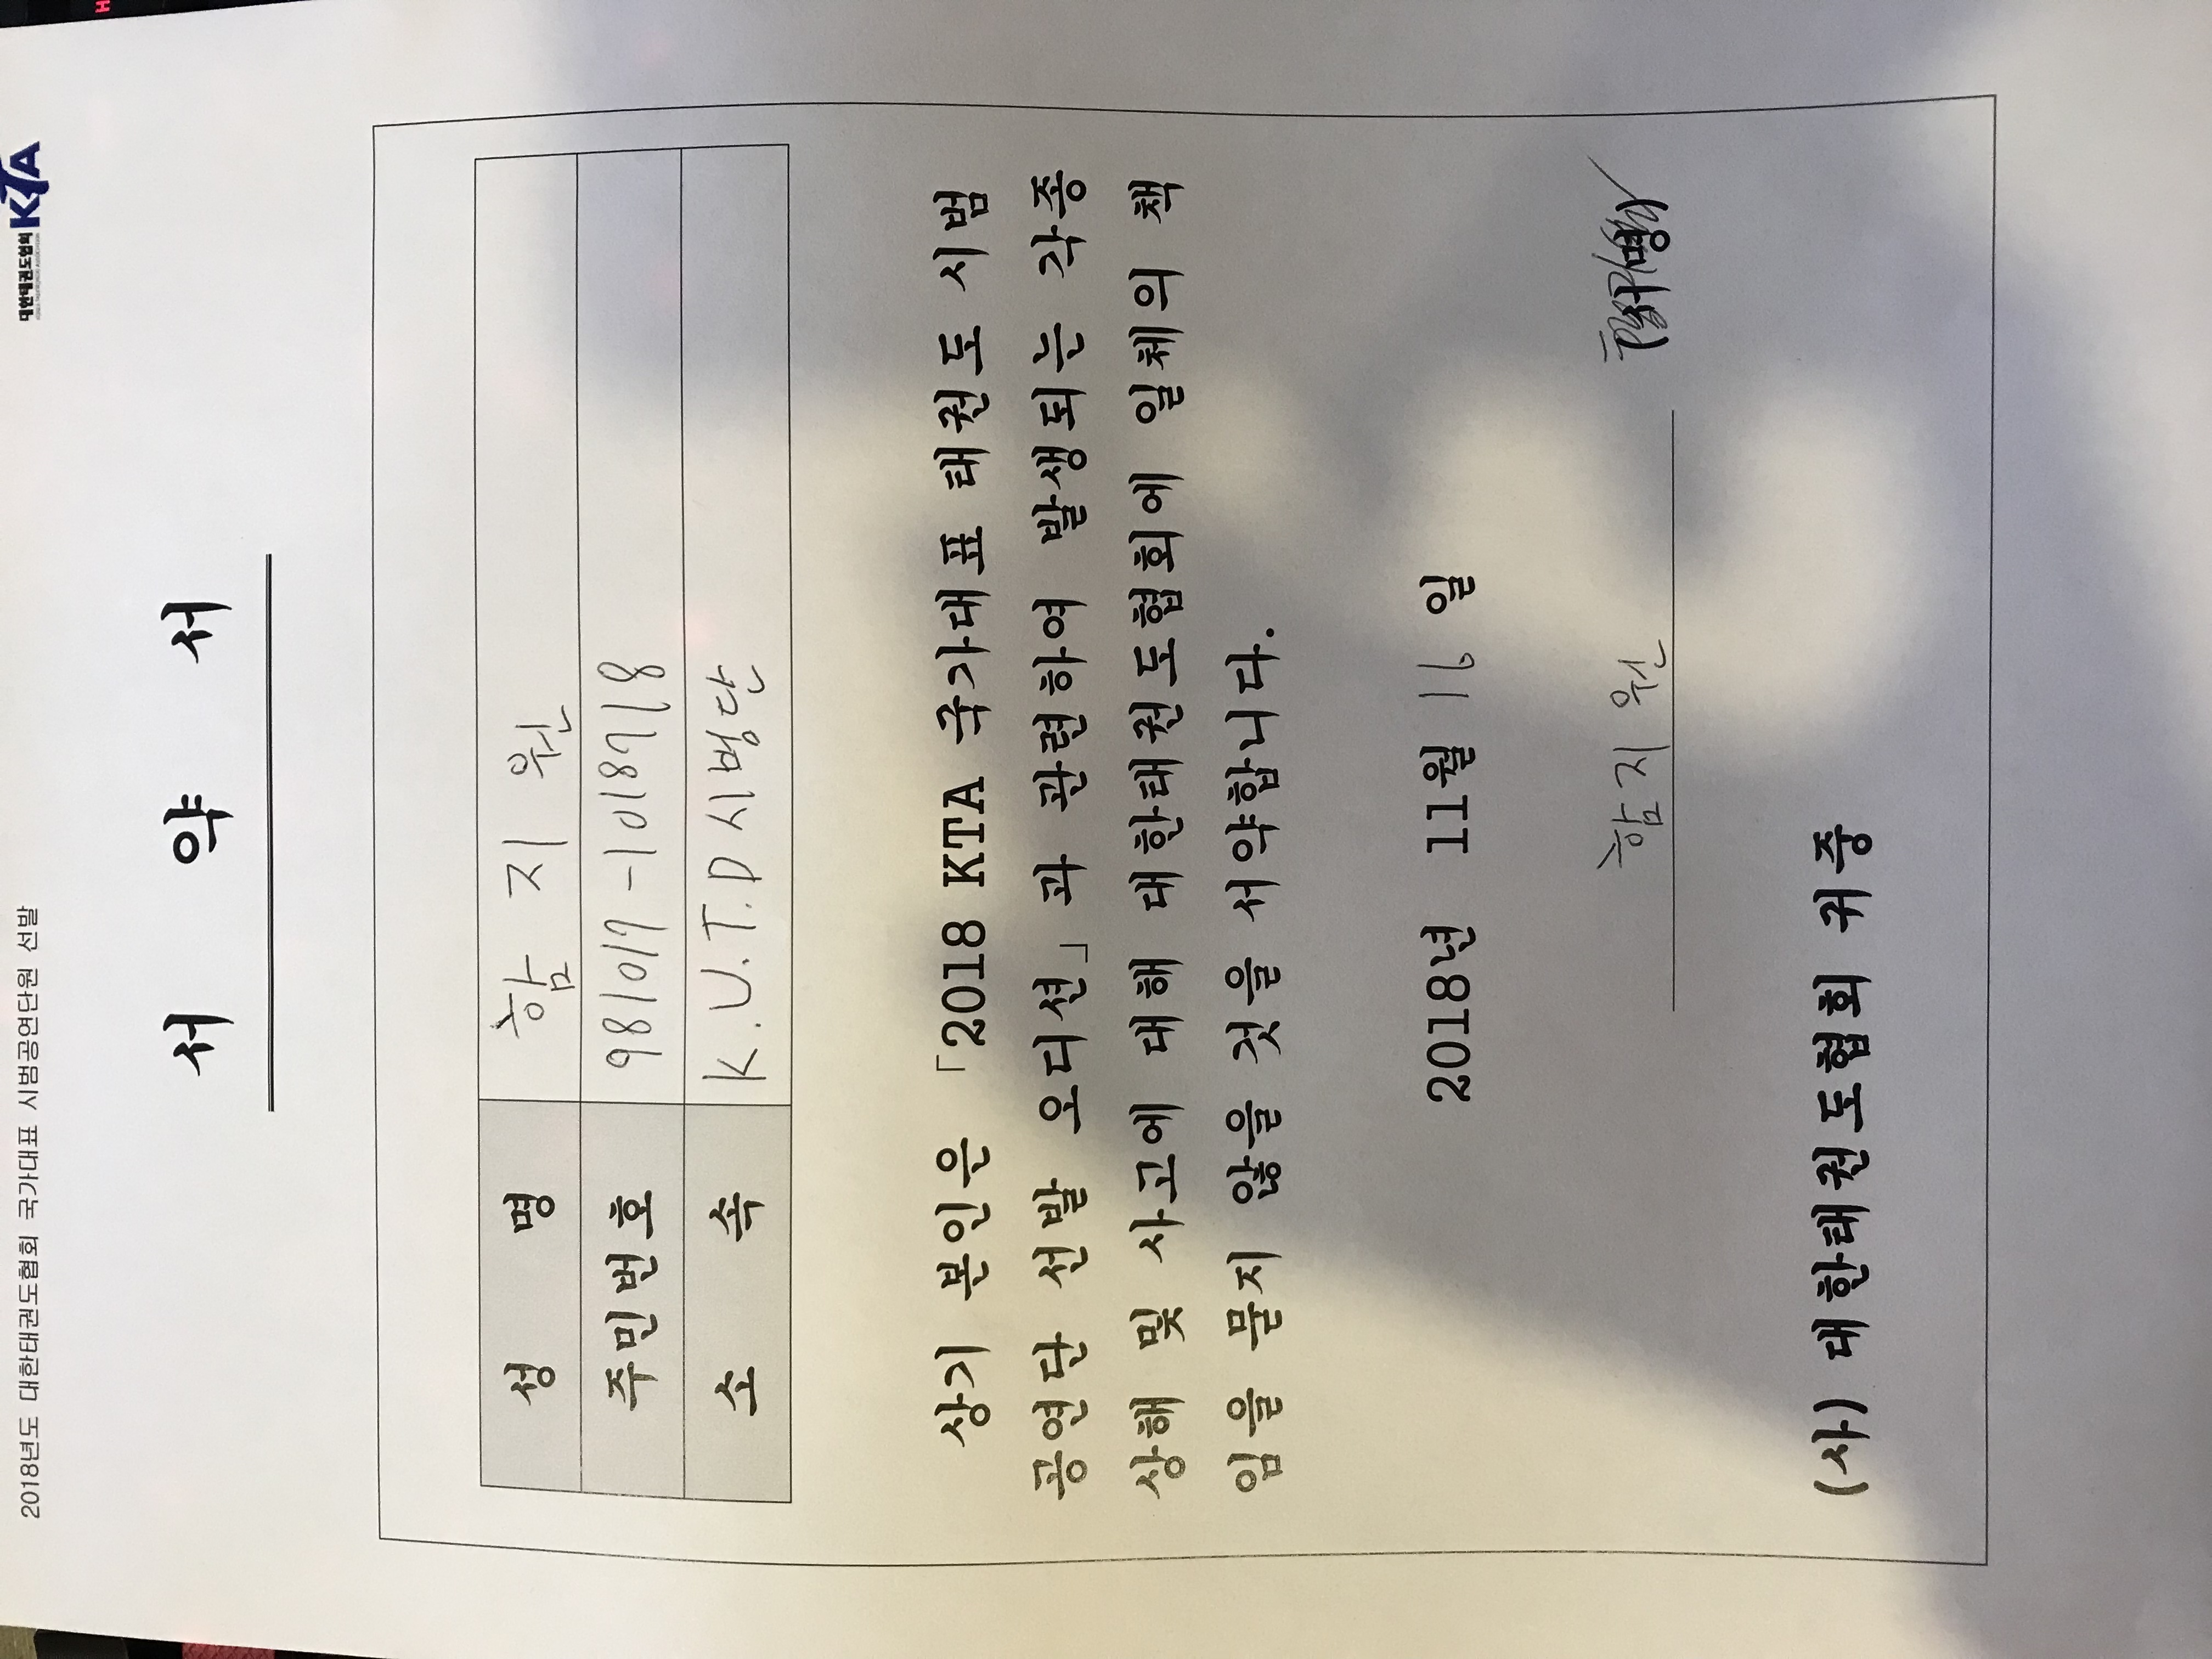 2018년도 대한태권도협회 국가대표 시범공연단원 선발
대한태권도협회 KTA
서 약 서
성 명 함 지 원
주민번호 981017-1018718
소 속 K.U.T.D 시범단
상기 본인은 「2018 KTA 국가대표 태권도 시범
공연단 선발 오디션」과 관련하여 발생되는 각종
상해 및 사고에 대해 대한태권도협회에 일체의 책
임을 묻지 않을 것을 서약합니다.
2018년 11월 16 일
함 지 원 (서명)
(사) 대한태권도협회 귀중